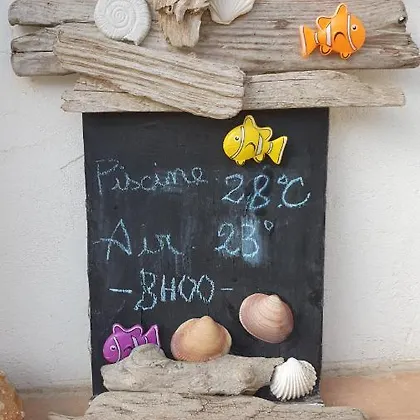 Piscine 28°C
Air 23°
-8H00-